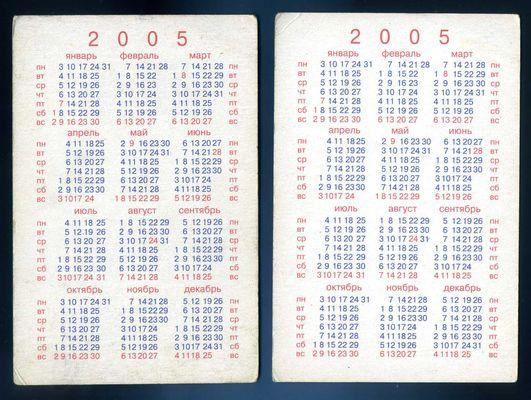 2005
январь февраль март
пн 3 10 17 24 31 7 14 21 28 7 14 21 28 пн
вт 4 11 18 25 1 8 15 22 1 8 15 22 29 вт
ср 5 12 19 26 2 9 16 23 2 9 16 23 30 ср
чт 6 13 20 27 3 10 17 24 3 10 17 24 31 чт
пт 7 14 21 28 4 11 18 25 4 11 18 25 пт
сб 1 8 15 22 29 5 12 19 26 5 12 19 26 сб
вс 2 9 16 23 30 6 13 20 27 6 13 20 27 вс
апрель май июнь
пн 4 11 18 25 2 9 16 23 30 6 13 20 27 пн
вт 5 12 19 26 3 10 17 24 31 7 14 21 28 вт
ср 6 13 20 27 4 11 18 25 1 8 15 22 29 ср
чт 7 14 21 28 5 12 19 26 2 9 16 23 30 чт
пт 1 8 15 22 29 6 13 20 27 3 10 17 24 пт
сб 2 9 16 23 30 7 14 21 28 4 11 18 25 сб
вс 3 10 17 24 1 8 15 22 29 5 12 19 26 вс
июль август сентябрь
пн 4 11 18 25 1 8 15 22 29 5 12 19 26 пн
вт 5 12 19 26 2 9 16 23 30 6 13 20 27 вт
ср 6 13 20 27 3 10 17 24 31 7 14 21 28 ср
чт 7 14 21 28 4 11 18 25 1 8 15 22 29 чт
пт 1 8 15 22 29 5 12 19 26 2 9 16 23 30 пт
сб 2 9 16 23 30 6 13 20 27 3 10 17 24 сб
вс 3 10 17 24 31 7 14 21 28 4 11 18 25 вс
октябрь ноябрь декабрь
пн 3 10 17 24 31 7 14 21 28 5 12 19 26 пн
вт 4 11 18 25 1 8 15 22 29 6 13 20 27 вт
ср 5 12 19 26 2 9 16 23 30 7 14 21 28 ср
чт 6 13 20 27 3 10 17 24 1 8 15 22 29 чт
пт 7 14 21 28 4 11 18 25 2 9 16 23 30 пт
сб 1 8 15 22 29 5 12 19 26 3 10 17 24 31 сб
вс 2 9 16 23 30 6 13 20 27 4 11 18 25 вс
2005
январь февраль март
пн 3 10 17 24 31 7 14 21 28 7 14 21 28 пн
вт 4 11 18 25 1 8 15 22 1 8 15 22 29 вт
ср 5 12 19 26 2 9 16 23 2 9 16 23 30 ср
чт 6 13 20 27 3 10 17 24 3 10 17 24 31 чт
пт 7 14 21 28 4 11 18 25 4 11 18 25 пт
сб 1 8 15 22 29 5 12 19 26 5 12 19 26 сб
вс 2 9 16 23 30 6 13 20 27 6 13 20 27 вс
апрель май июнь
пн 4 11 18 25 2 9 16 23 30 6 13 20 27 пн
вт 5 12 19 26 3 10 17 24 31 7 14 21 28 вт
ср 6 13 20 27 4 11 18 25 1 8 15 22 29 ср
чт 7 14 21 28 5 12 19 26 2 9 16 23 30 чт
пт 1 8 15 22 29 6 13 20 27 3 10 17 24 пт
сб 2 9 16 23 30 7 14 21 28 4 11 18 25 сб
вс 3 10 17 24 1 8 15 22 29 5 12 19 26 вс
июль август сентябрь
пн 4 11 18 25 1 8 15 22 29 5 12 19 26 пн
вт 5 12 19 26 2 9 16 23 30 6 13 20 27 вт
ср 6 13 20 27 3 10 17 24 31 7 14 21 28 ср
чт 7 14 21 28 4 11 18 25 1 8 15 22 29 чт
пт 1 8 15 22 29 5 12 19 26 2 9 16 23 30 пт
сб 2 9 16 23 30 6 13 20 27 3 10 17 24 сб
вс 3 10 17 24 31 7 14 21 28 4 11 18 25 вс
октябрь ноябрь декабрь
пн 3 10 17 24 31 7 14 21 28 5 12 19 26 пн
вт 4 11 18 25 1 8 15 22 29 6 13 20 27 вт
ср 5 12 19 26 2 9 16 23 30 7 14 21 28 ср
чт 6 13 20 27 3 10 17 24 1 8 15 22 29 чт
пт 7 14 21 28 4 11 18 25 2 9 16 23 30 пт
сб 1 8 15 22 29 5 12 19 26 3 10 17 24 31 сб
вс 2 9 16 23 30 6 13 20 27 4 11 18 25 вс